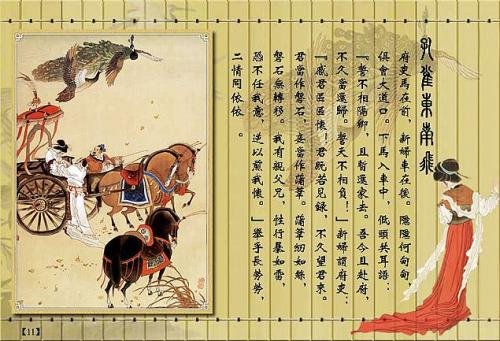 孔雀東南飛
府吏馬在前，新婦車在後。隱隱何甸甸，
俱會大道口。下馬入車中，低頭共耳語：
『誓不相隔卿，且暫還家去。吾今且赴府，
不久當還歸。誓天不相負！』新婦謂府吏：
『感君區區懷！君既若見錄，不久望君來。
君當作磐石。妾當作蒲葦。蒲葦紉如絲，
磐石無轉移。我有親父兄，性行暴如雷，
恐不任我意，逆以煎我懷。』舉手長勞勞，
二情同依依。
【11】